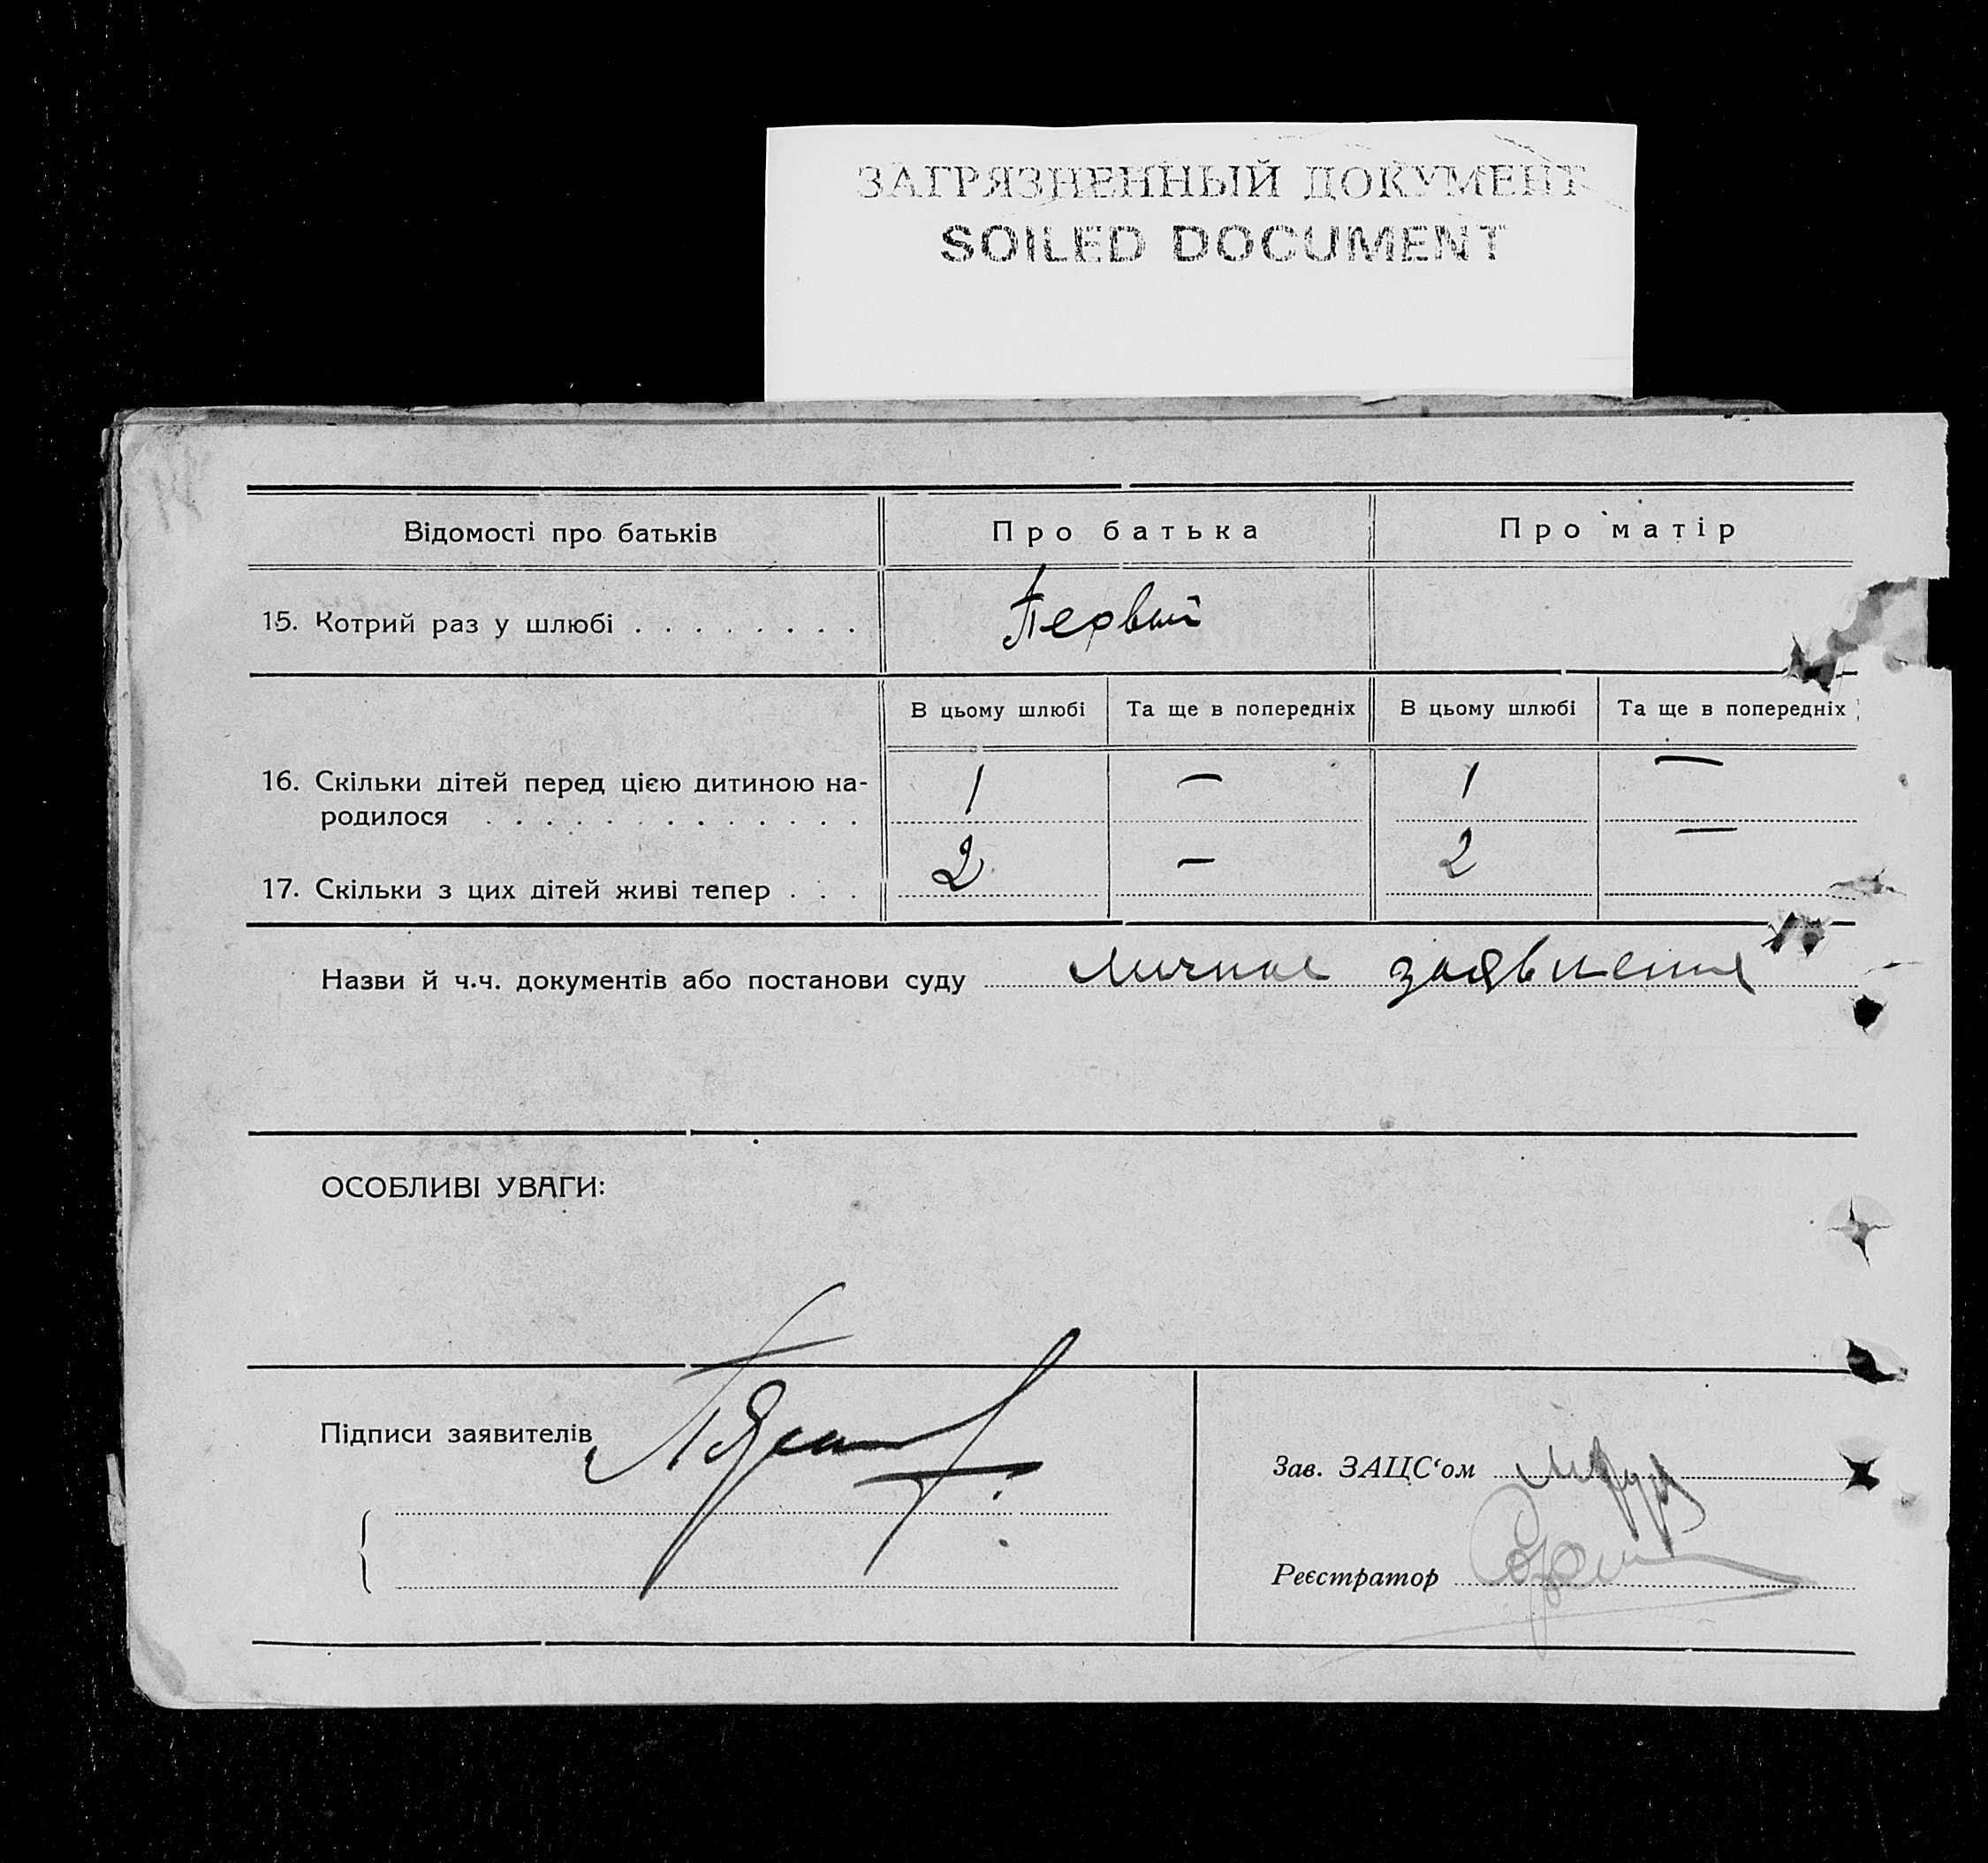 ЗАГРЯЗНЕННЫЙ ДОКУМЕНТ
SOILED DOCUMENT
Відомості про батьків Про батька Про матір
15. Котрий раз у шлюбі . . . . . . . . Первый
В цьому шлюбі Та ще в попередніх В цьому шлюбі Та ще в попередніх
16. Скільки дітей перед цією дитиною на-
родилося . . . . . . . . . . . . . 1 — 1 —
17. Скільки з цих дітей живі тепер . . . 2 — 2 —
Назви й ч.ч. документів або постанови суду личное заявление
ОСОБЛИВІ УВАГИ:
Підписи заявителів
Зав. ЗАЦС‘ом
Реєстратор